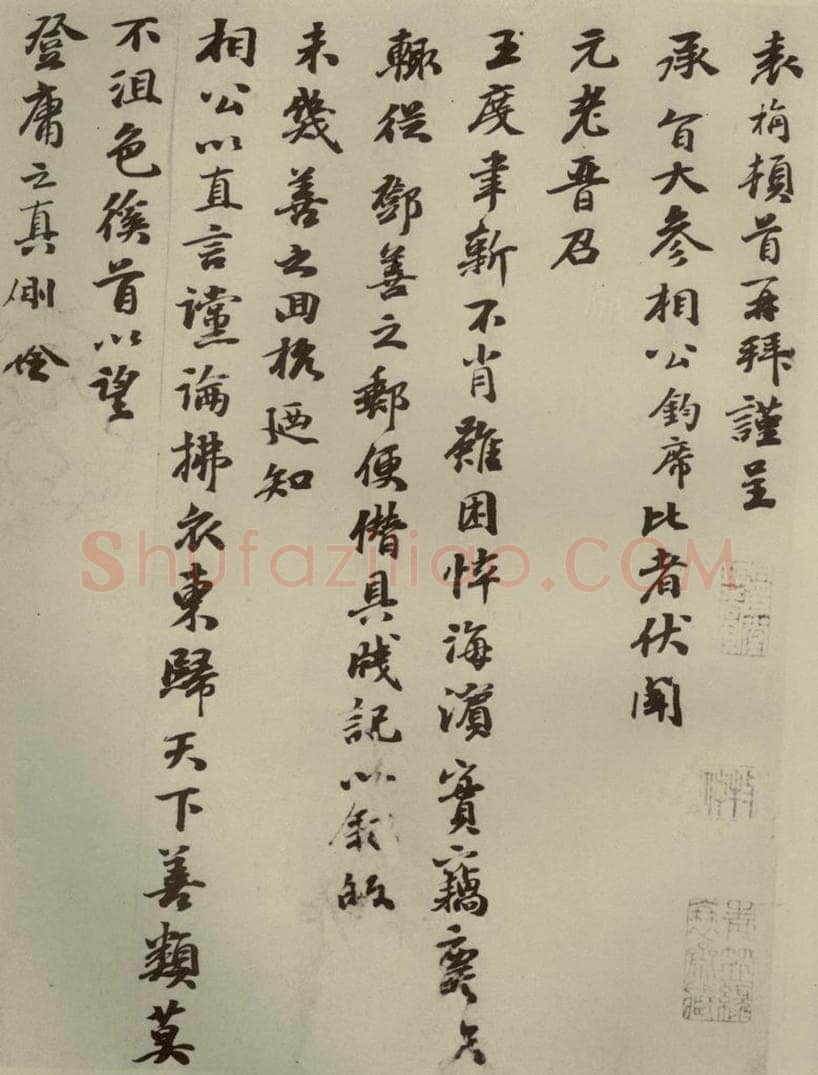 袁桷頓首再拜謹呈
承旨大參相公鈞席比者伏聞
元老晉召
玉度聿新不肖雖困悴海濱實竊慶
輒從鄧善之郵便僭具牋記以敘
未幾善之回杭廼知
相公以直言讜論拂衣東歸天下善類莫
不沮色徯首以望
登庸之真側
Shufaziliao.COM